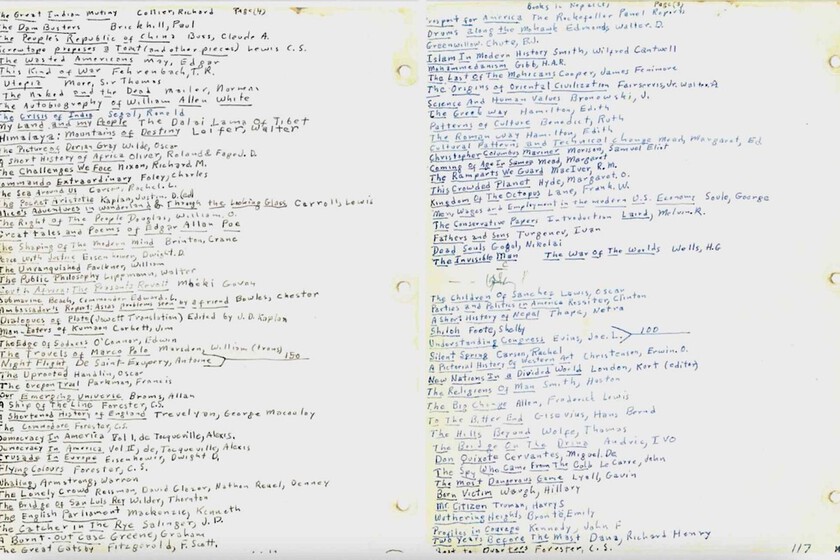 The Great Indian Mutiny Collier, Richard Page (4)
The Dam Busters Brickhill, Paul
The People's Republic of China Buss, Claude A.
Screwtape proposes a Toast (and other pieces) Lewis C.S.
The Wasted Americans May, Edgar
This Kind of War Fehrenbach, T.R.
Utopia More, Sir Thomas
The Naked and the Dead Mailer, Norman
The Autobiography of William Allen White
The Crisis of India Segal, Ronald
My Land and My People The Dalai Lama Of Tibet
Himalaya: Mountains of Destiny Leifer, Walter
The Picture of Dorian Gray Wilde, Oscar
A Short History of Africa Oliver, Roland & Fage J. D.
The Challenges We Face Nixon, Richard M.
Commando Extraordinary Foley, Charles
The Sea Around Us Carson, Rachel L.
The Pocket Aristotle Kaplan, Justin D. (ed)
Alice's Adventures in Wonderland & Through the Looking Glass Carroll, Lewis
The Right Of The People Douglas, William O.
Great Tales and Poems of Edgar Allan Poe
The Shaping Of The Modern Mind Brinton, Crane
Eisenhower, Dwight D.
The Unvanquished Faulkner, William
The Public Philosophy Lippmann, Walter
South Africa: The Peasants Revolt Mbeki Govan
Submarine Beach, Commander Edward L.
Ambassador's Report: Asias problems seen by a friend Bowles, Chester
Dialogues of Plato (Jowett Translation) Edited by J. D. Kaplan
Man-Eaters of Kumaon Corbett, Jim
The Edge of Sadness O'Connor, Edwin
The Travels of Marco Polo Marsden, William (trans)
Night Flight De Saint-Exupery, Antoine 150
The Uprooted Handlin, Oscar
The Oregon Trail Parkman, Francis
Our Emerging Universe Broms, Allan
A Ship Of The Line Forester, C.S.
A Shortened History of England Trevelyan, George Macaulay
The Commodore Forester, C.S.
Democracy In America Vol I, de Tocqueville, Alexis.
Democracy In America Vol II, de Tocqueville, Alexis
Crusade In Europe Eisenhower, Dwight D.
Flying Colours Forester, C. S.
Whaling, Armstrong, Warren
The Lonely Crowd Riesman, David Glazer, Nathan Reuel, Denney
The Bridge Of San Luis Rey Wilder, Thornton
The English Parliament Mackenzie, Kenneth
The Catcher in The Rye Salinger, J.D.
A Burnt-Out Case Greene, Graham
The Great Gatsby Fitzgerald, F. Scott,
Books in Nepal (5) Page (5)
Prospect for America The Rockefeller Panel Reports
Drums Along the Mohawk Edmonds, Walter D.
Greenwillow. Chute, B.J.
Islam In Modern History Smith, Wilfred Cantwell
Mohammedanism Gibb, H.A.R.
The Last Of The Mohicans Cooper, James Fenimore
The Origins of Oriental Civilization Fairservis, Jr. Walter A
Science And Human Values Bronowski, J.
The Greek Way Hamilton, Edith
Patterns of Culture Benedict, Ruth
The Roman Way Hamilton, Edith
Cultural Patterns and Technical Change Mead, Margaret, Ed
Christopher Columbus Mariner Morison, Samuel Eliot
Coming Of Age In Samoa Mead, Margaret
The Ramparts We Guard MacIver, R. M.
This Crowded Planet Hyde, Margaret, O.
Kingdom Of The Octopus Lane, Frank. W.
Men, Wages and Employment in the modern U.S. Economy Soule, George
The Conservative Papers Introduction Laird, Melvin R.
Fathers and Sons Turgenev, Ivan
Dead Souls Gogol, Nikolai
The Invisible Man The War Of The Worlds Wells, H.G
The Children Of Sanchez Lewis, Oscar
Parties and Politics in America Rossiter, Clinton
A Short History of Nepal Thapa, Netra
Shiloh Foote, Shelby
Understanding Congress Evins, Joe. L. 100
Silent Spring Carson, Rachel
A Pictorial History Of Western Art Christensen, Erwin. O.
New Nations In a Divided World London, Kurt (editor)
The Religions Of Man Smith, Huston
The Big Change Allen, Frederick Lewis
To The Bitter End Gisevius, Hans Bernd
The Hills Beyond Wolfe, Thomas
The Bridge On The Drina Andric, IVO
Don Quixote Cervantes, Miguel. De
The Spy Who Came From The Cold Le Carre, John
The Most Dangerous Game Lyall, Gavin
Born Victim Waugh, Hillary
Mr Citizen Truman, Harry S
Wuthering Heights Bronte, Emily
Profiles in Courage Kennedy, John F
Two Years Before The Mast Dana, Richard Henry
Forester, C. S.
117